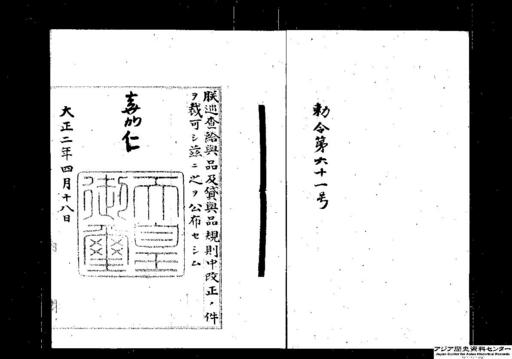 勅令第六十一号
朕巡査給与品及貸与品規則中改正ノ件
ヲ裁可シ茲ニ之ヲ公布セシム
嘉仁
天皇御璽
大正二年四月十八日
アジア歴史資料センター
Japan Center for Asian Historical Records